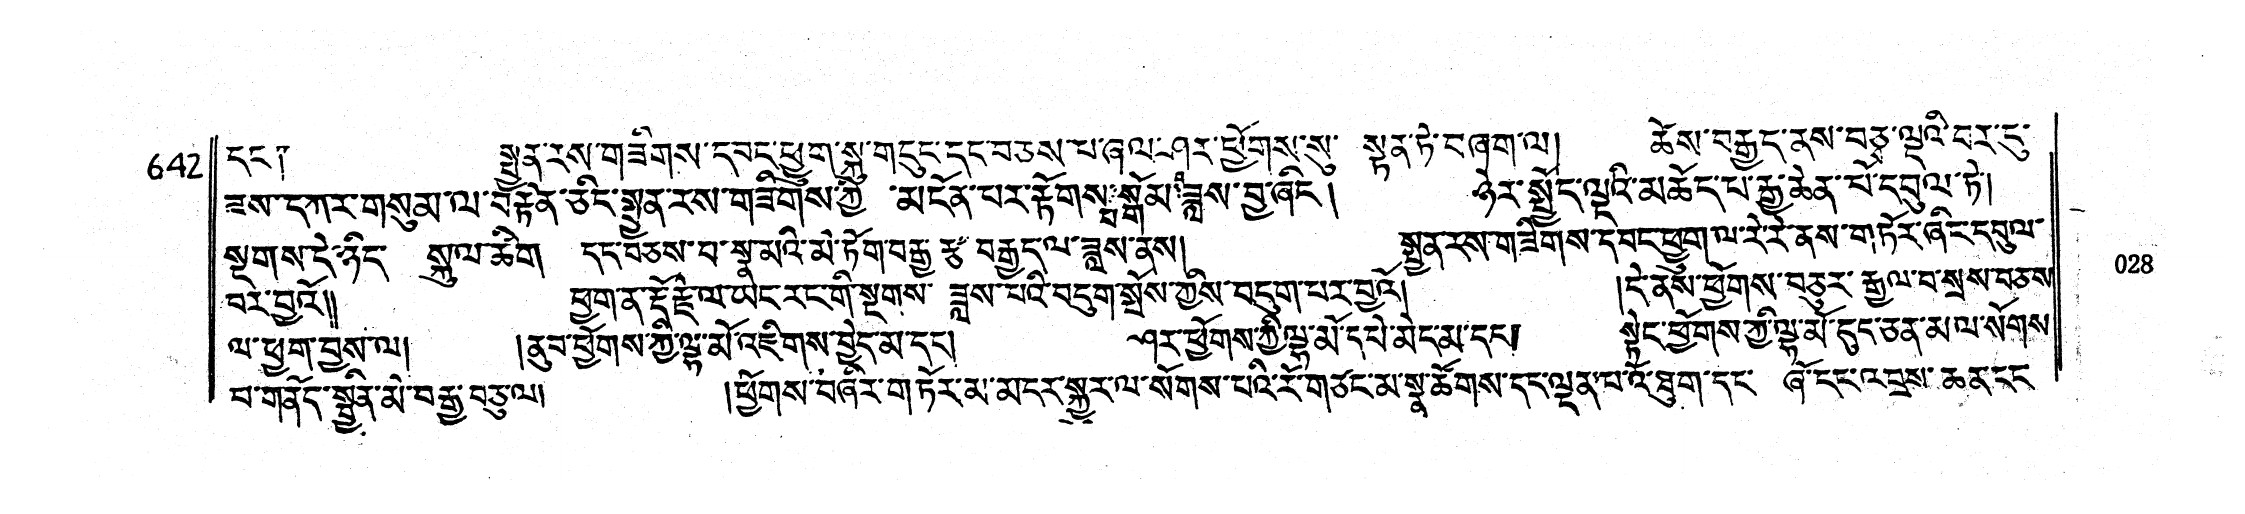 642 དང༌། སྤྱན་རས་གཟིགས་དབང་ཕྱུག་སྐུ་གདུང་དང་བཅས་པ་ཞལ་ཤར་ཕྱོགས་སུ་ སྟན་ཏེ་ང་ཞག་ལ། ཚེས་བརྒྱད་ནས་བཅྭ་ལྔའི་བར་དུ་
ཟས་དཀར་གསུམ་ལ་བརྟེན་ཅིང་སྤྱན་རས་གཟིགས་ཀྱི་ མངོན་པར་རྟོགས་ སྒོམ་ བཟླས་བྱ་ཞིང༌། ཉེར་སྤྱོད་ལྔའི་མཆོད་པ་རྒྱ་ཆེན་པོ་དབུལ་ཏེ།
སྔགས་དེ་ཉིད སྐུལ་ཚིག དང་བཅས་པ་སྣ་མའི་མེ་ཏོག་བརྒྱ་རྩ་བརྒྱད་ལ་ཟླས་ནས། སྤྱན་རས་གཟིགས་དབང་ཕྱུག་ལ་རེ་རེ་ནས་གཏོར་ཞིང་དབུལ་
བར་བྱའོ༎ ཕྱག་ན་རྡོ་རྗེ་ལ་ཡང་རང་གི་སྔགས་ ཟླས་པའི་བདུག་སྤོས་ཀྱིས་བདུག་པར་བྱའོ། །དེ་ནས་ཕྱོགས་བཅུར་རྒྱལ་བ་སྲས་བཅས
ལ་ཕྱག་བྱས་ལ། །ནུབ་ཕྱོགས་ཀྱི་ལྷ་མོ་འཇིགས་བྱེད་མ་དང༌། ཤར་ཕྱོགས་ཀྱི་ལྷ་མོ་དཔེ་མེད་མ་དང༌། སྟེང་ཕྱོགས་ཀྱི་ལྷ་མོ་དུད་ཅན་མ་ལ་སོགས
པ་གནོད་སྦྱིན་མེ་བརྒྱ་བཅུ་ལ། །ཕྱོགས་བཞིར་གཏོར་མ་མངར་སྐྱུར་ལ་སོགས་པའི་རོ་གཙང་མ་སྣ་ཚོགས་དང་ལྡན་པ་འོ་ཐུག་དང་ ཞོ་དང་འབྲས་ཆན་དང
028